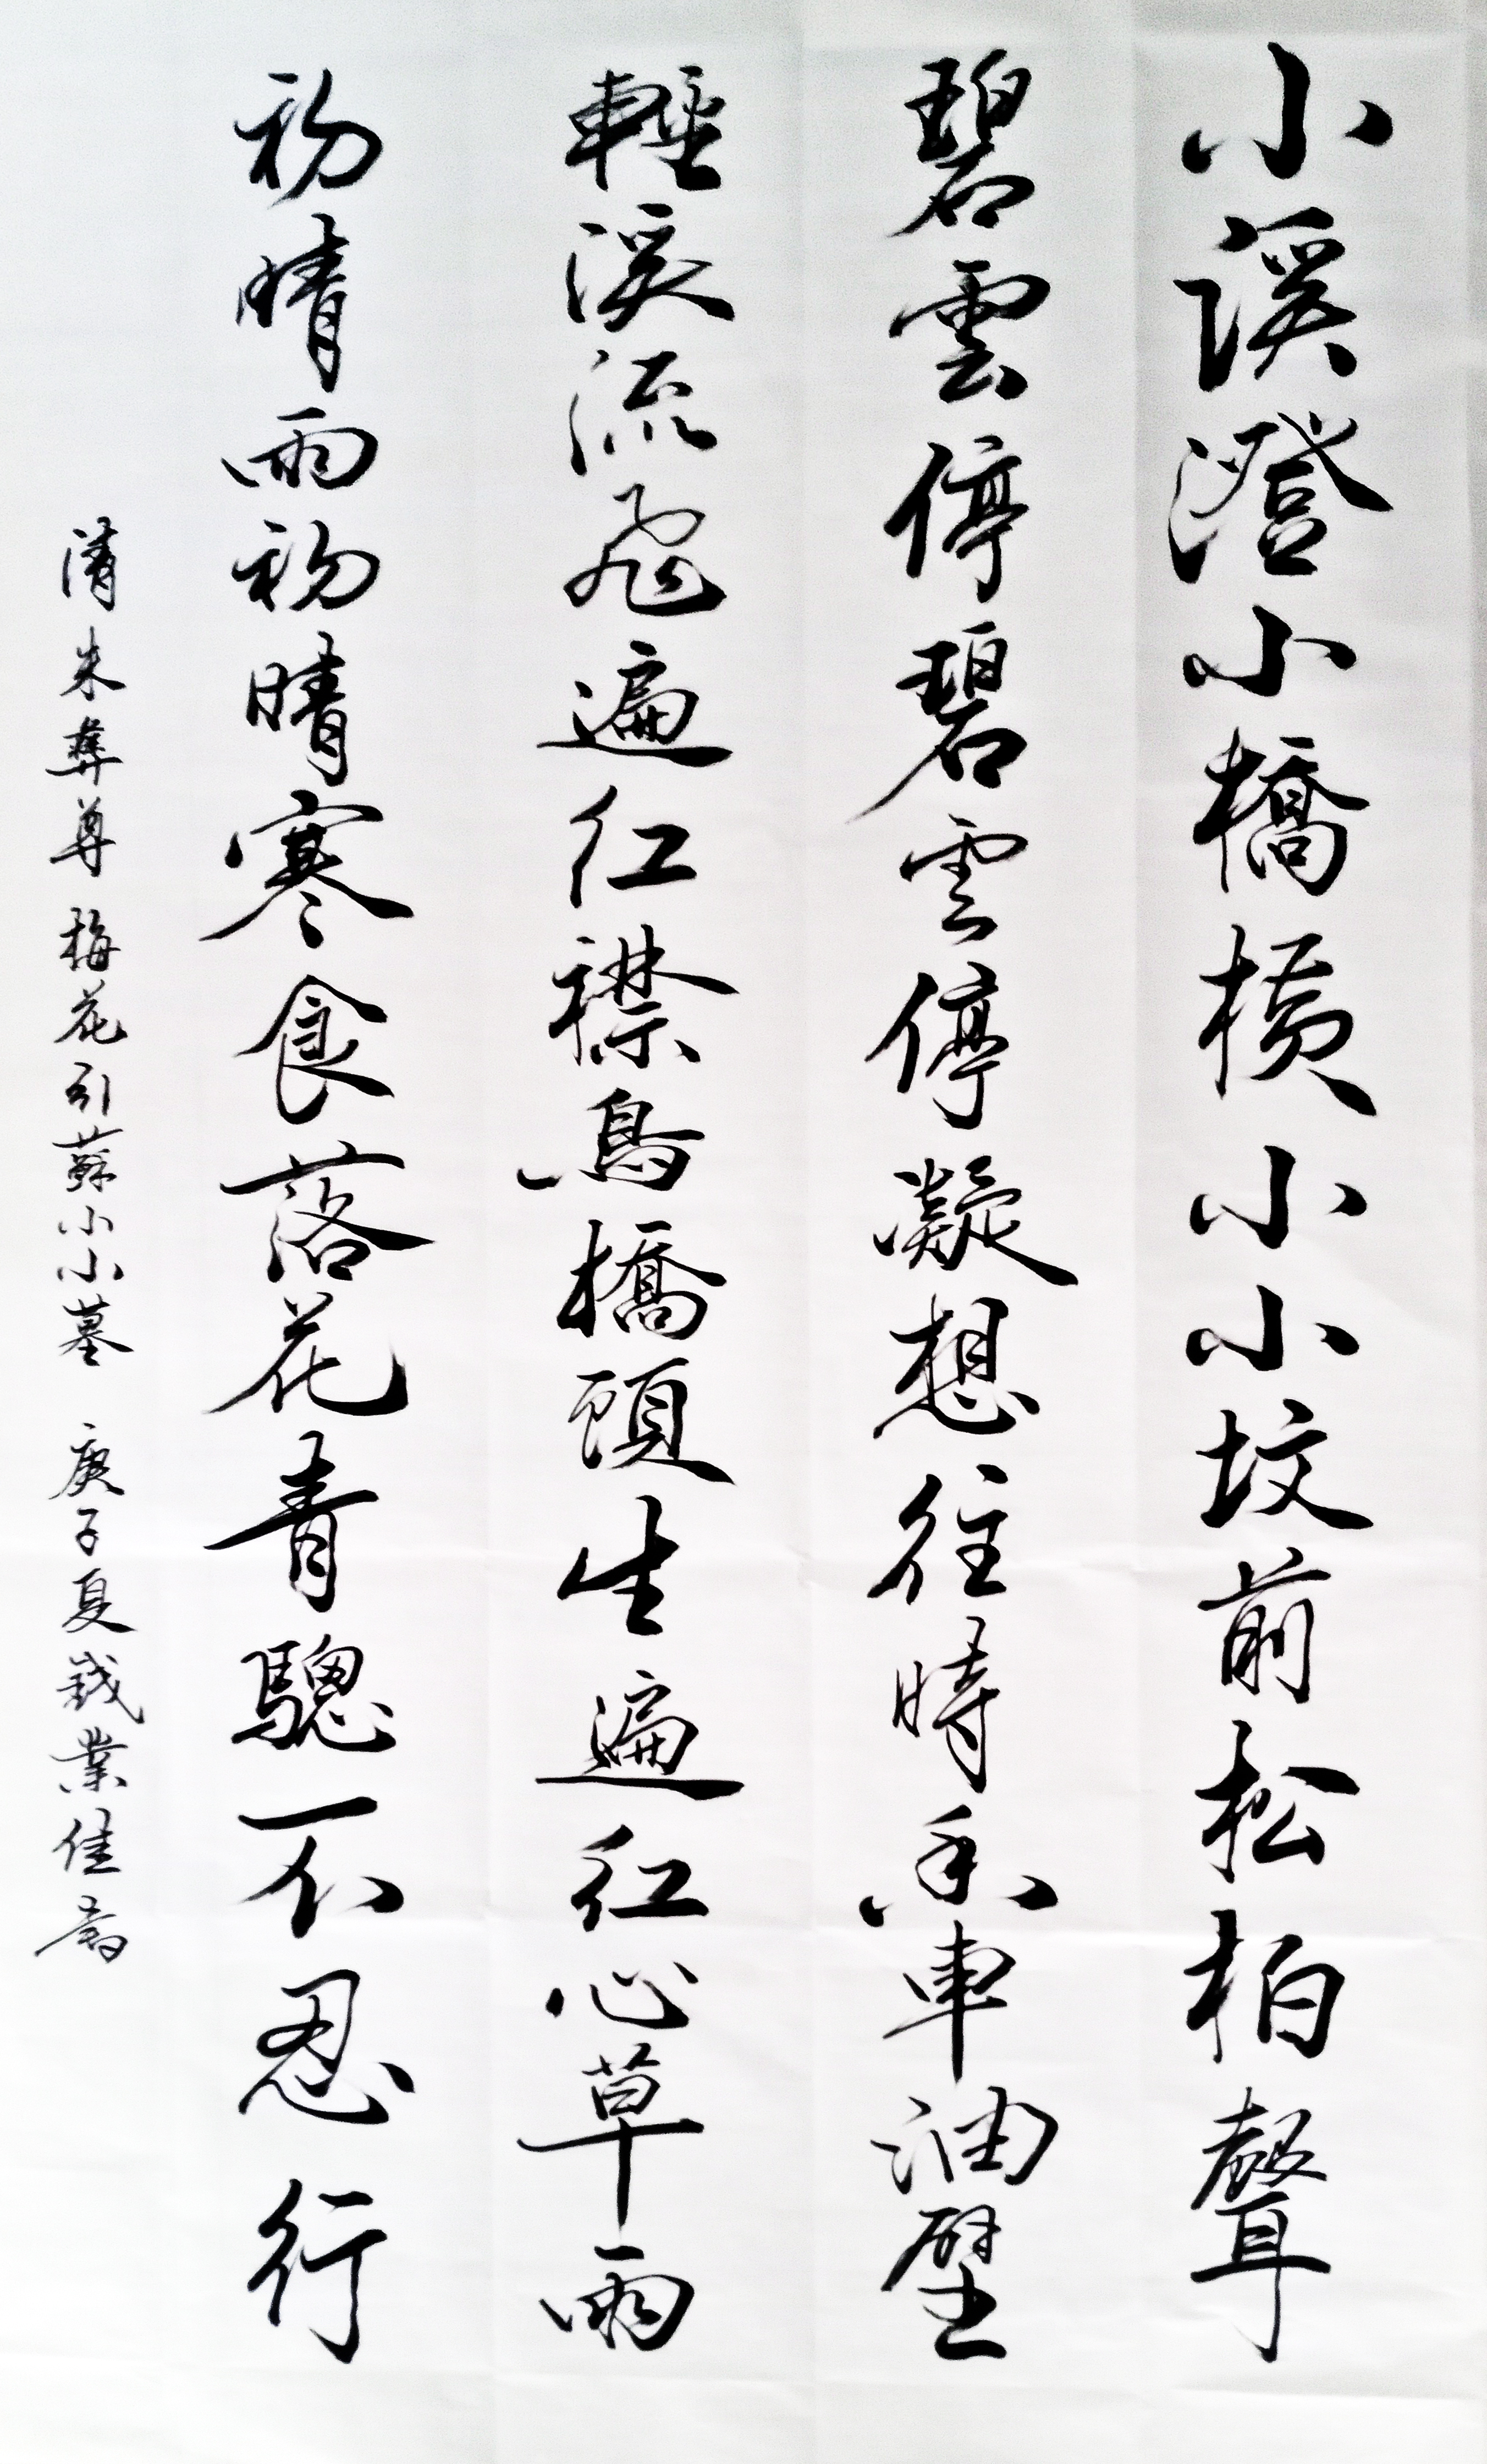 小溪澄小橋橫小小坟前松柏聲
碧雲停碧雲停凝想往時香車油壁
輕溪流飛遍紅襟鳥橋頭生遍紅心草雨
初晴雨初晴寒食落花青驄不忍行
清朱彝尊梅花引蘇小小墓 庚子夏錢業佳書